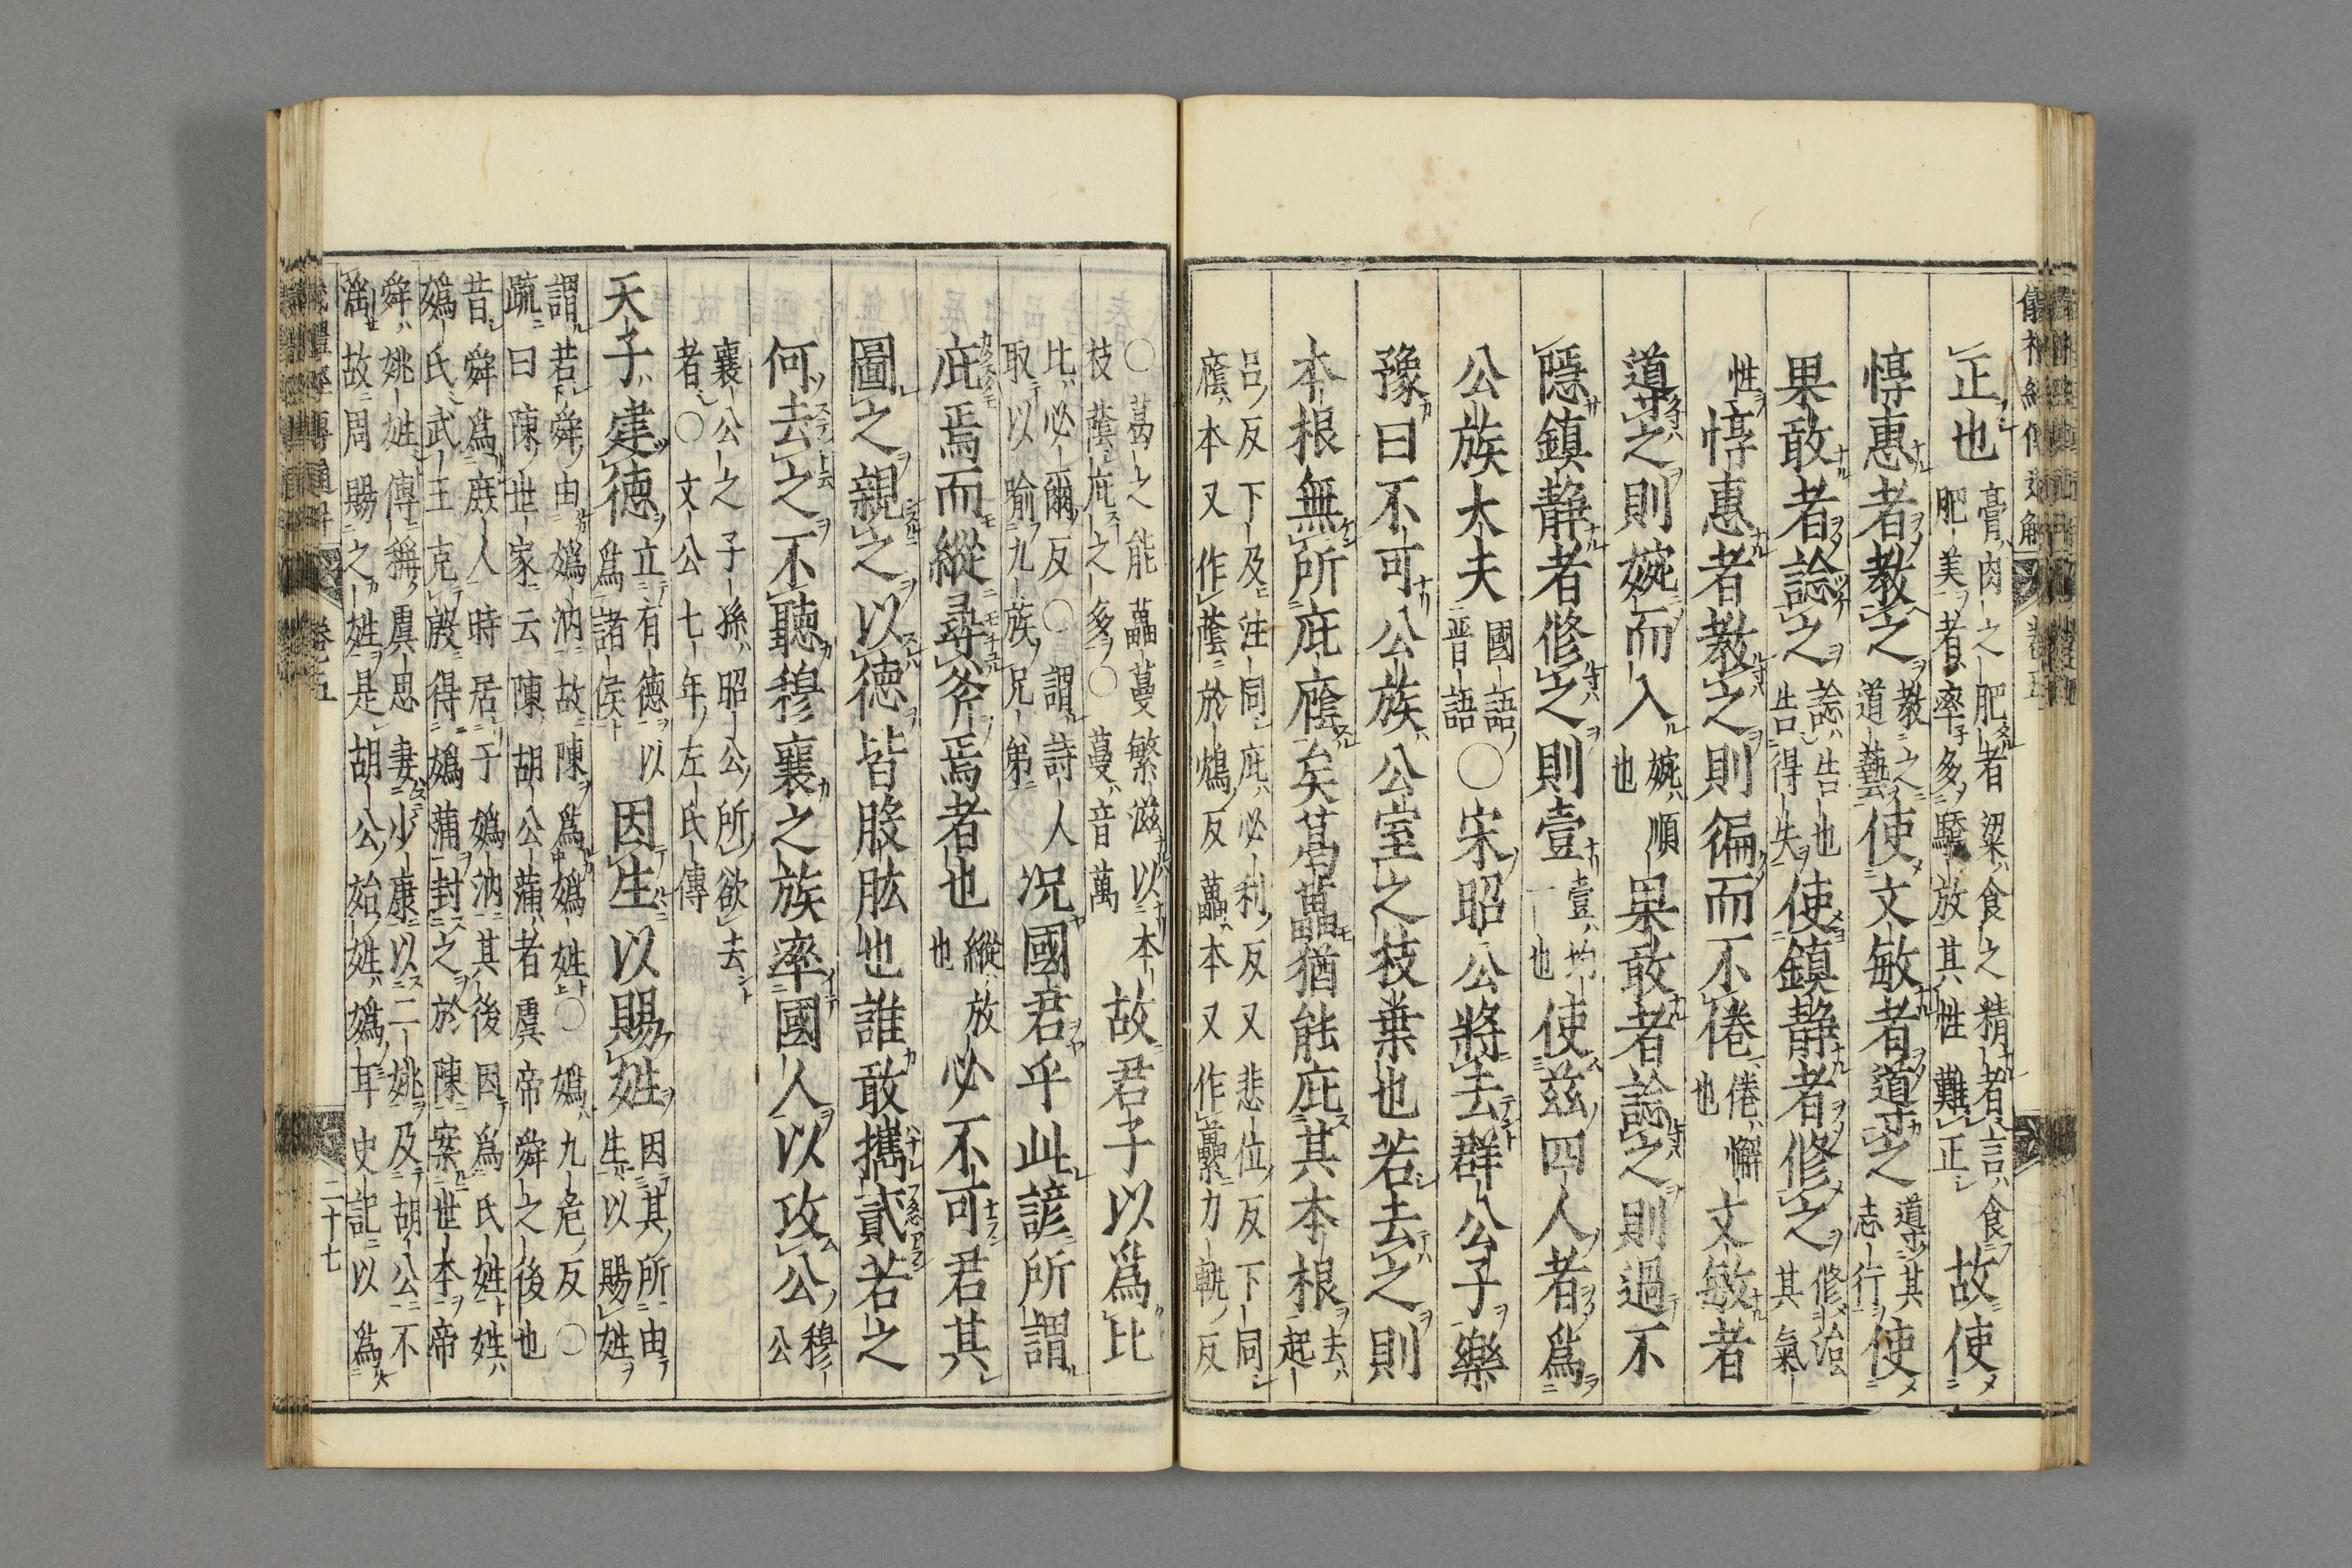 正也膏肉之肥者粱食之精者言食
肥美者率多驕放其性難正故使
惇惠者教之教之
道藝使文敏者導之導其
志行使
果敢者諗之諗告也
告得失使鎮静者修之修治
其氣
性惇惠者教之則徧而不倦倦懈
也文敏者
導之則婉而入婉順
也果敢者諗之則過不
隱鎮静者修之則壹壹均
一也使兹四人者爲
公族大夫國語
晋語〇宋昭公將去群公子樂
豫曰不可公族公室之枝葉也若去之則
本根無所庇廕矣葛藟猶能庇其本根去
起
呂反下及注同庇必利反又悲位反下同
廕本又作蔭於鴆反藟本又作虆力軌反
〇葛之能藟蔓繁滋以本
枝蔭庇之多〇蔓音萬故君子以爲比
比必爾反〇謂詩人
取以喻九族兄弟况國君乎此諺所謂
庇焉而縱尋斧焉者也縱放
也必不可君其
圖之親之以徳皆股肱也誰敢攜貳若之
何去之不聽穆襄之族率國人以攻公穆
公
襄公之子孫昭公所欲去
者〇文公七年左氏傳
天子建徳立有徳以
爲諸侯因生以賜姓因其所由
生以賜姓
謂若舜由嬀汭故陳爲嬀姓〇嬀九危反〇
疏曰陳世家云陳胡公蒲者虞帝舜之後也
昔舜爲庶人時居于嬀汭其後因爲氏姓姓
嬀氏武王克殷得嬀蒲封之於陳案世本帝
舜姚姓傳稱虞思妻少康以二姚及胡公不
滛故周賜之姓是胡公始姓嬀耳史記以爲
二十七